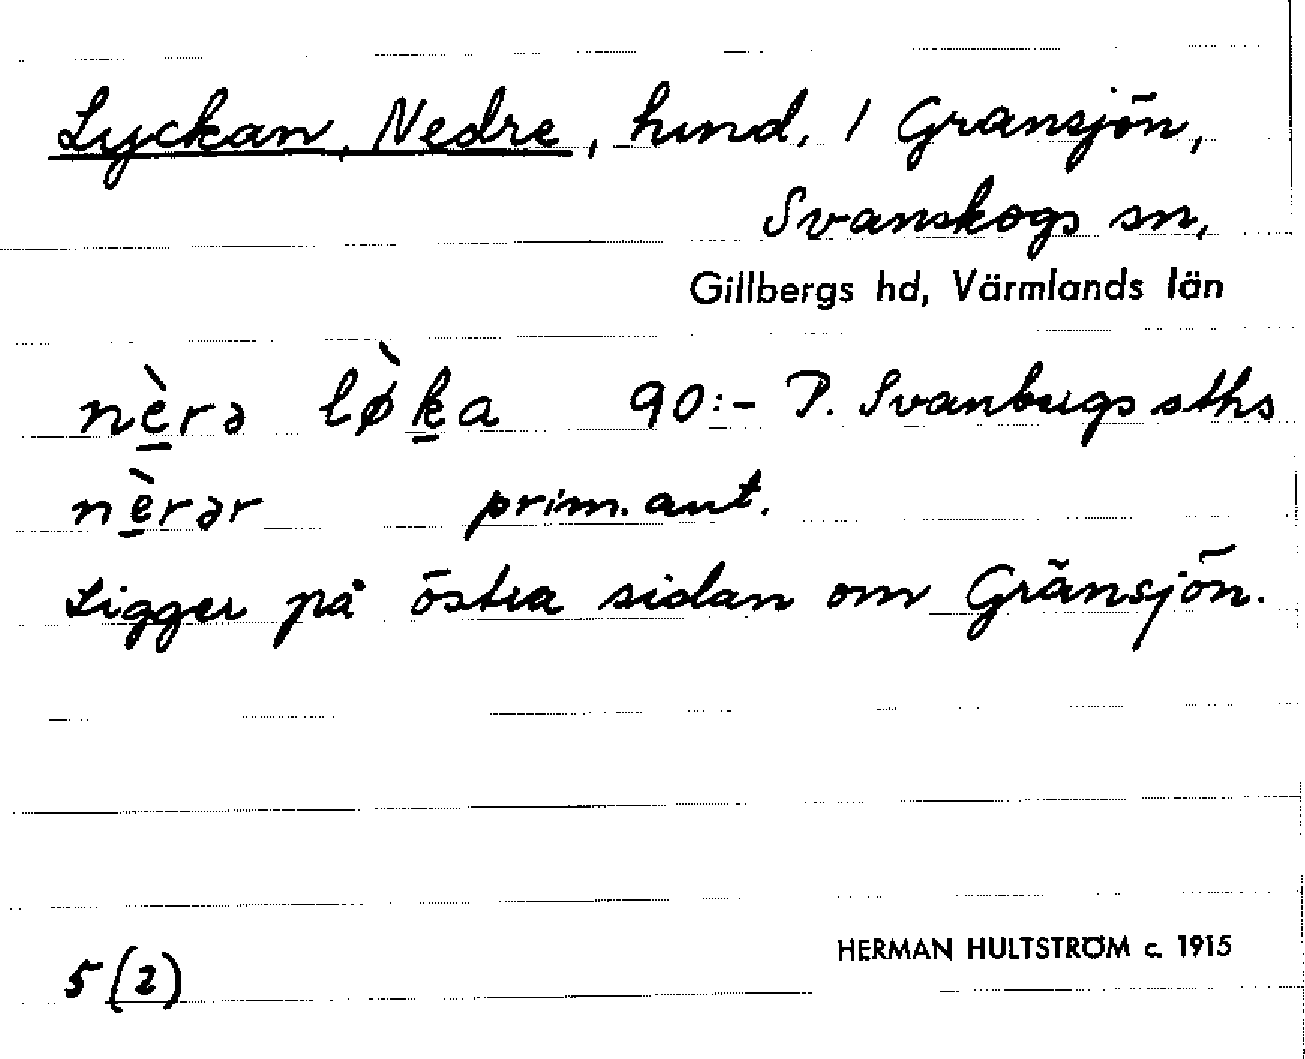 Lyckan, Nedre, hmd. / Gränsjön,
Svanskogs sn,
Gillbergs hd, Värmlands län
nè̱rə lø̀ḵa 90:- P. Svanbergs sths
nè̱rər prim. ant.
Ligger på östra sidan om Gränsjön.
HERMAN HULTSTRÖM c. 1915
5(2)